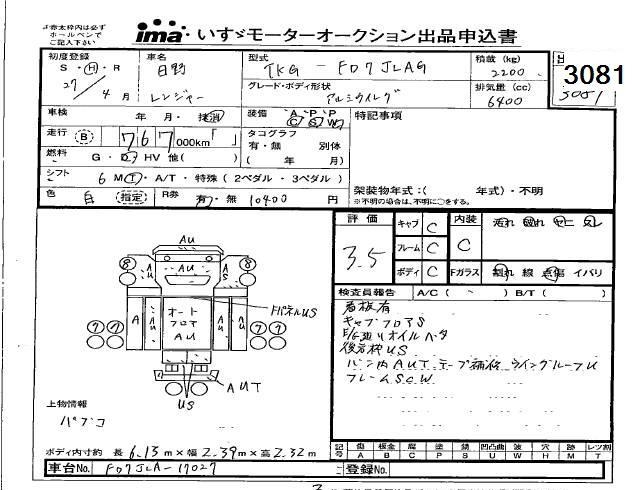 赤太枠内は必ず
ホールペンで
ご記入下さい
ima いすゞモーターオークション出品申込書
初度登録
S・H・R
27 / 4月
車名
日野
レンジャー
型式
TKG-FD7JLAG
グレード・ボディ形状
アルミウイング
積載(kg)
2200
排気量(cc)
6400
3081
車検
年・月・抹消
装備
A・P・P
C S W
特記事項
走行
B 767 000km「 」
タコグラフ
有・無 別体
( 年 月)
燃料
G・D・HV 他( )
シフト
6 MT・A/T・特殊(2ペダル・3ペダル)
架装物年式:( 年式)・不明
※不明の場合は、不明に○をする。
色
白 指定
R券
有・無 10400 円
評価
3.5
キャブ C
フレーム C
ボディ C
内装
C
汚れ 破れ ヤニ
Fガラス
割れ 線 点傷 イバリ
検査員報告 A/C( ) B/T( )
看板有
キャブフロアS
E/G廻りオイルベタ
後完枠US
バン内AUT テープ補修 ウイングルーフU
フレームS.C.W
AU
8 8
A AU AU A S
FパネルUS
7 7 7 7
A AU オート フロア AU AU A
AUT
US
上物情報
パブコ
ボディ内寸約 長6.13m×幅2.39m×高2.32m
記号
傷 板金 腐 塗 錆 凹凸曲 波 穴 跡 レツ割
A B C P S U W H M T
車台No. FD7JLA-17027
登録No.